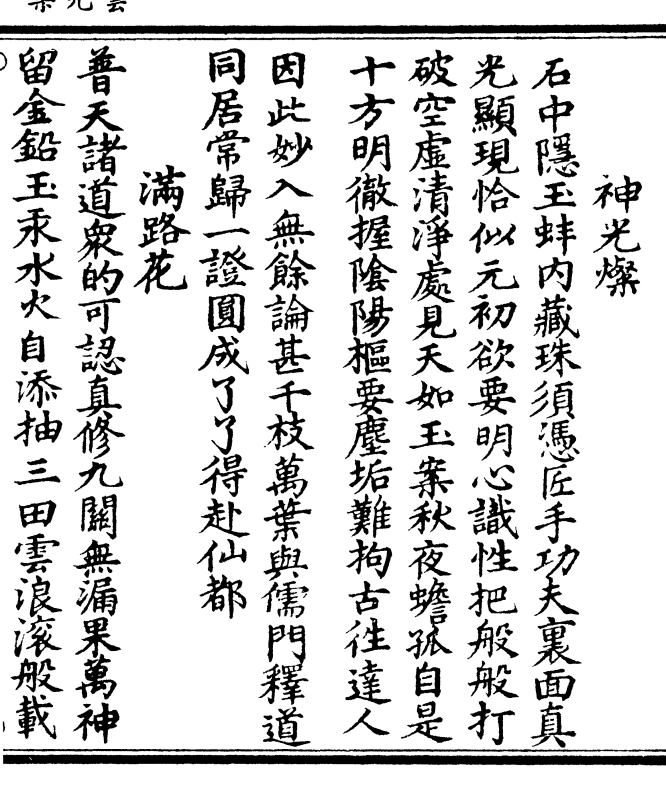 神光燦
石中隱玉蚌内藏珠須憑匠手功夫裏面真
光顯現恰似元初欲要明心識性把般般打
破空虛清淨處見天如玉案秋夜蟾孤自是
十方明徹握陰陽樞要塵垢難拘古徃達人
因此妙入無餘論甚千枝萬葉與儒門釋道
同居常歸一證圓成了了得赴仙都
滿路花
普天諸道衆的可認真修九關無漏果萬神
留金鉛玉汞水火自添抽三田雲浪滚般載